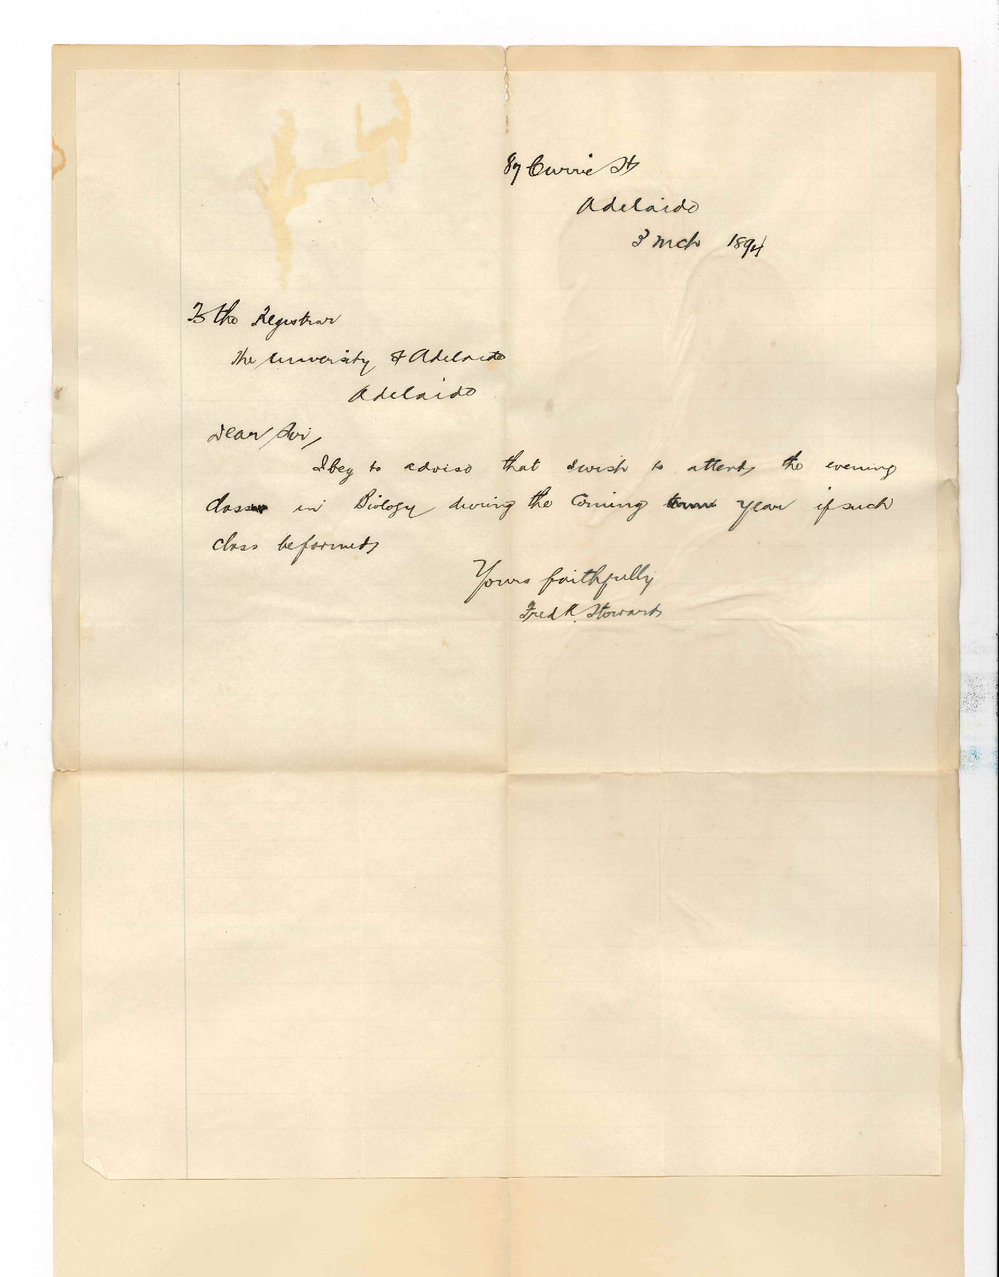 87 Currie St
Adelaide
3 Mch 1894
To the Registrar
The University of Adelaide
Adelaide
Dear Sir,
I beg to advise that I wish to attend the evening
class in Biology during the Coming term year if such
class be formed
Yours faithfully
Fredk. Steward